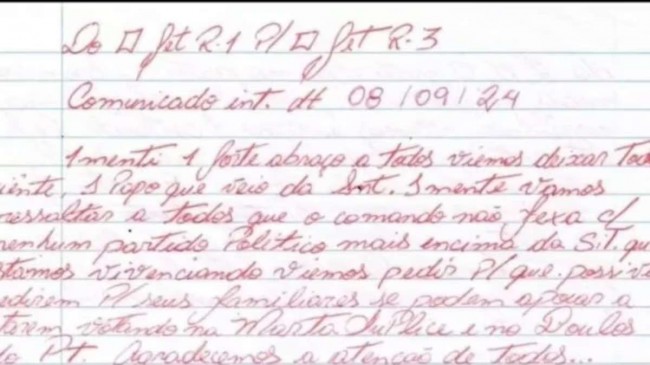 Do □ Jet R.1 P/ □ Jet R-3
Comunicado int. dt 08/09/24
1menti 1 forte abraço a todos viemos deixar Tod
iente, 1 Papo que veio da Snt. 1mente vamos
ressaltar a todos que o comando não fexa c/
nenhum partido Político mais encima da Sit. qu
stamos vivenciando viemos pedir P/ que possive
edirem P/ seus familiares se podem apoiar a
tarem votando na Marta Suplice e no Boulos
do Pt. Agradecemos a atencão de todos...